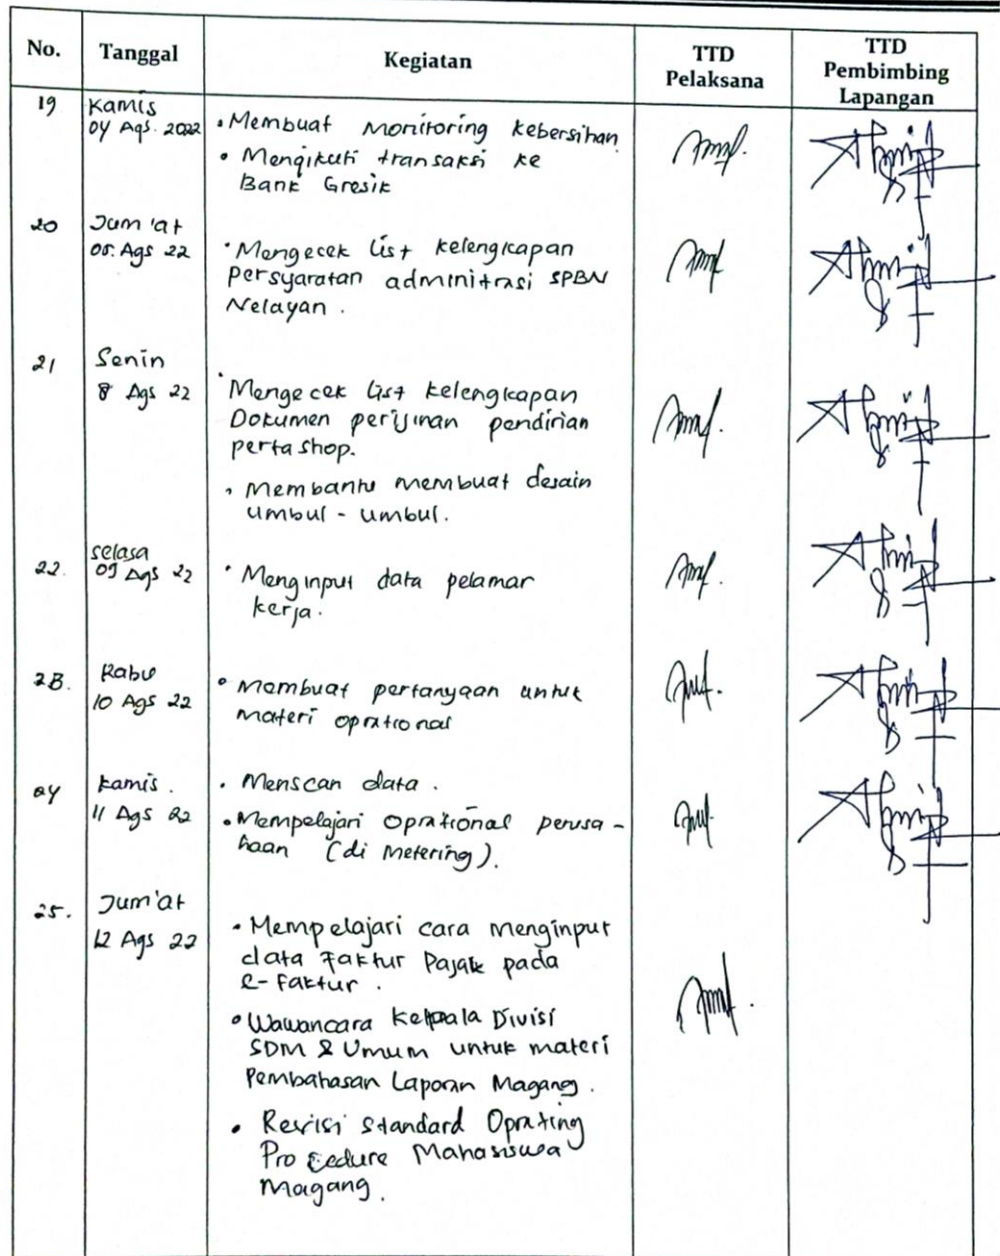 No.
Tanggal
Kegiatan
TTD
Pelaksana
TTD
Pembimbing
Lapangan
19
Kamis
04 Ags. 2022
• Membuat Monitoring kebersihan
• Mengikuti transaksi ke
Bank Gresik
20
Jum'at
05 Ags 22
• Mengecek list kelengkapan
persyaratan adminitrasi SPBN
Nelayan.
21
Senin
8 Ags 22
• Mengecek list kelengkapan
Dokumen perijinan pendirian
pertashop.
• Membantu membuat desain
umbul - umbul.
22.
Selasa
09 Ags 22
• Menginput data pelamar
kerja.
23.
Rabu
10 Ags 22
• Membuat pertanyaan untuk
materi oprational
24
Kamis.
11 Ags 22
• Menscan data.
• Mempelajari oprational perusa -
haan (di Metering).
25.
Jum'at
12 Ags 22
• Mempelajari cara menginput
data Faktur Pajak pada
e-Faktur.
• Wawancara Kepala Divisi
SDM & Umum untuk materi
Pembahasan Laporan Magang.
• Revisi Standard Oprating
Procedure Mahasiswa
Magang.